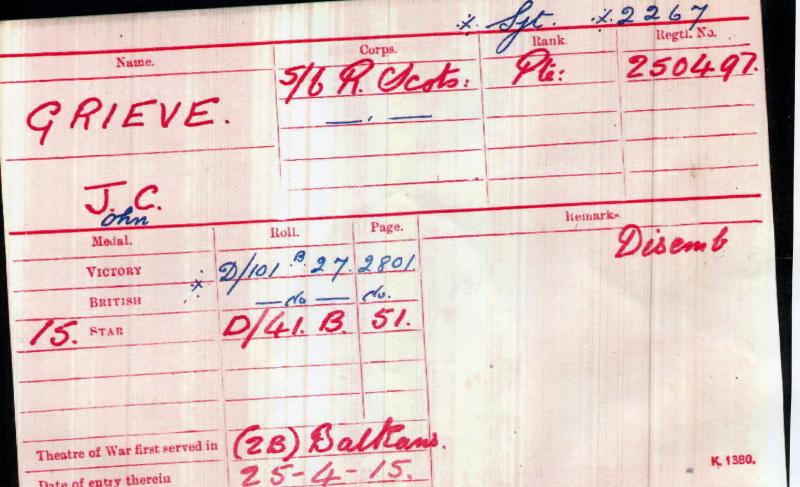 .x. Sgt. .x. 2267
Name. Corps. Rank. Regtl. No.
GRIEVE. 5/6 R. Scots: Pte: 250497.
— . —
J. C.
ohn
Medal. Roll. Page. Remarks.
VICTORY D/101 B 27. 2801. Disemb
BRITISH .x. — do — do.
15. STAR D/41. B. 51.
Theatre of War first served in (2B) Balkans.
Date of entry therein 25-4-15.
K. 1380.